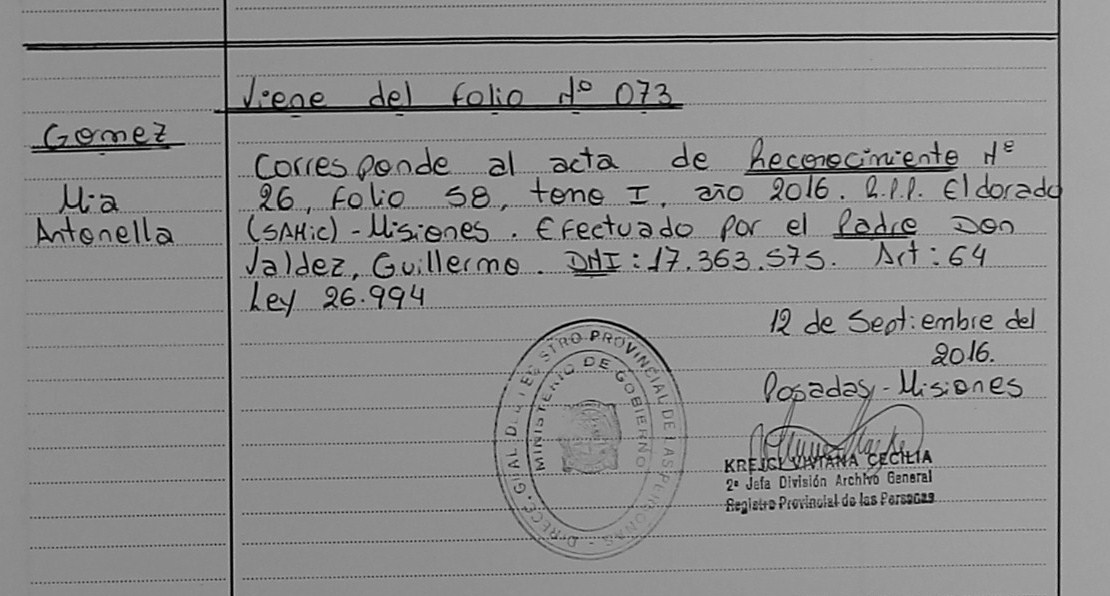 Viene del Folio Nº 073
Gomez
Mia
Antonella
Corresponde al acta de Reconocimiento Nº
26, Folio 58, tomo I, año 2016. R.P.P. Eldorado
(SAMic) - Misiones. Efectuado por el Padre Don
Valdez, Guillermo. DNI: 17.363.575. Art: 64
Ley 26.994
12 de Septiembre del
2016.
Posadas - Misiones
MINISTERIO DE GOBIERNO
KREJCI VIVIANA CECILIA
2º Jefa División Archivo General
Registro Provincial de las Personas